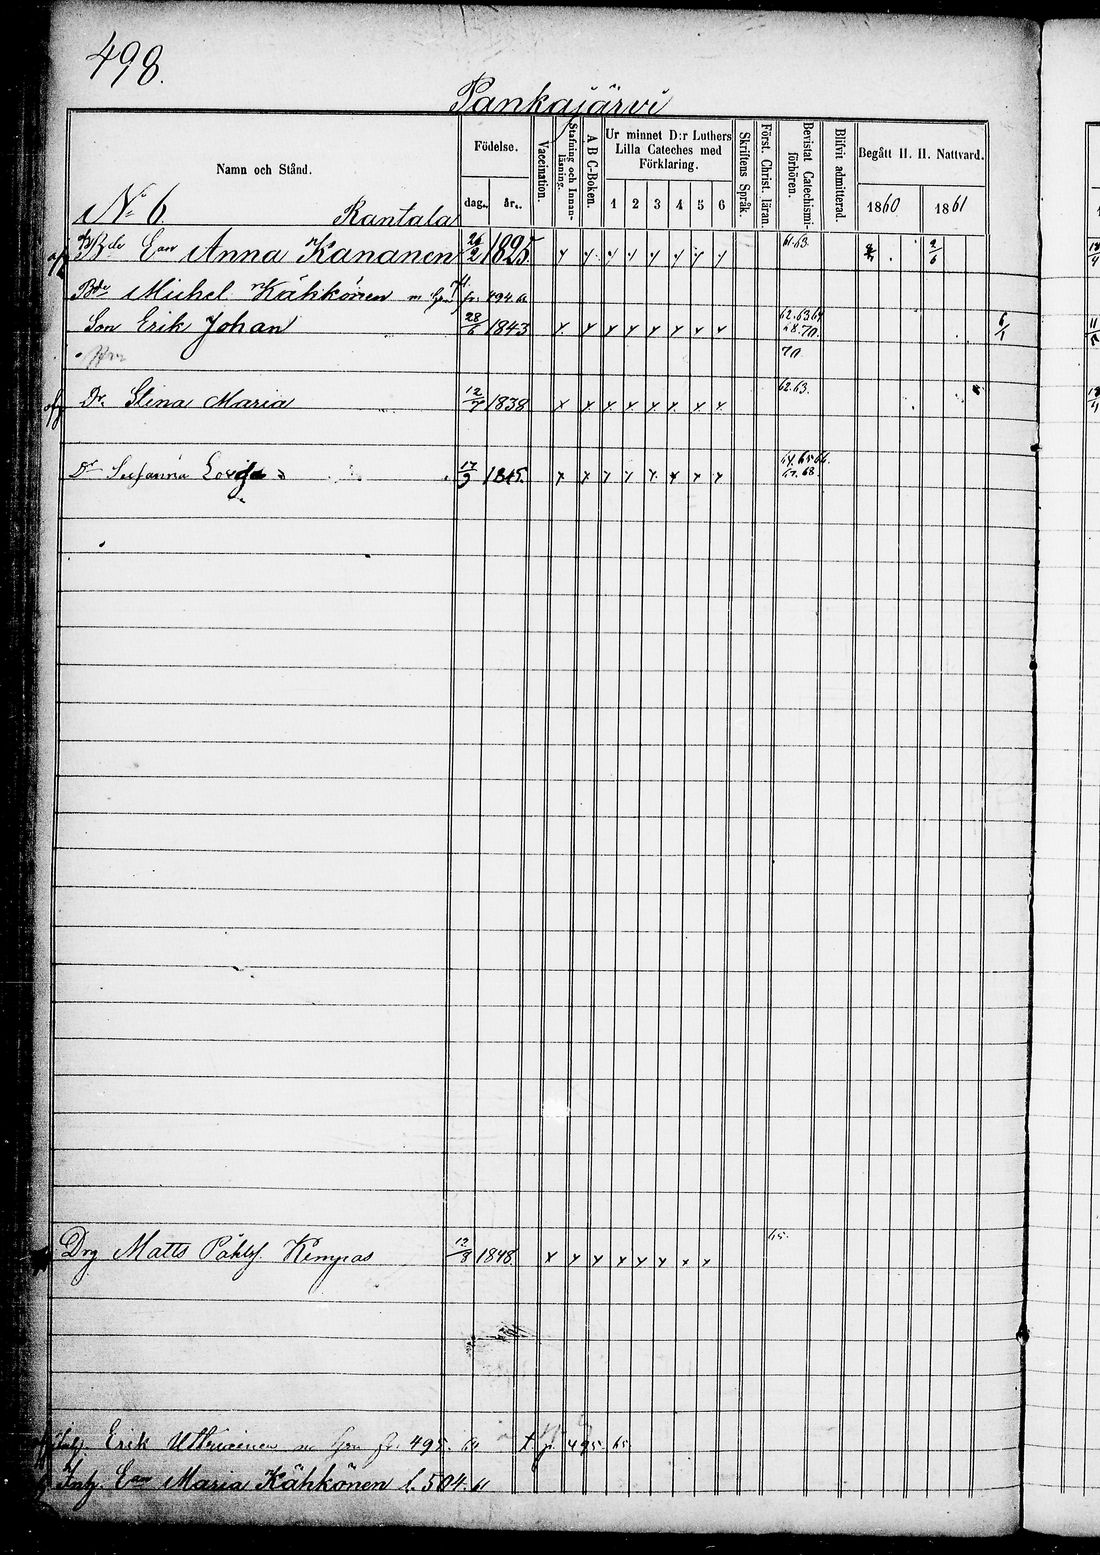 498.
Pankajärvi
Namn och Stånd.
Födelse.
dag. år.
Vaccination.
Stafning och Innanläsning.
A B C-Boken.
Ur minnet D:r Luthers Lilla Cateches med Förklaring.
1 2 3 4 5 6
Skriftens Språk.
Först. Christ. läran.
Bevistat Catechismiförhören.
Blifvit admitterad.
Begått H. H. Nattvard.
1860 1861
No 6. Rantala
Bde Ean Anna Kananen 26/2 1825 y y y y y y y y 61.63. 2/6
Bde Michel Kähkönen m fr. 494.61
Son Erik Johan 28/6 1843 x x x x x x x x 62.63.64 68.70. 6/1
70
Dr Stina Maria 12/7 1838 x x x x x x x x 62.63.
Dr Susanna Lovisa 17/9 1845. x x y y y x y y 64.65.66 67.68.
Drg Matts Påhlsf. Kempas 12/8 1848 x y y y y y x y 65.
Erik m fr 495. 61 t. p. 495. 65
Inh. Ean Maria Kähkönen f. 504. 61